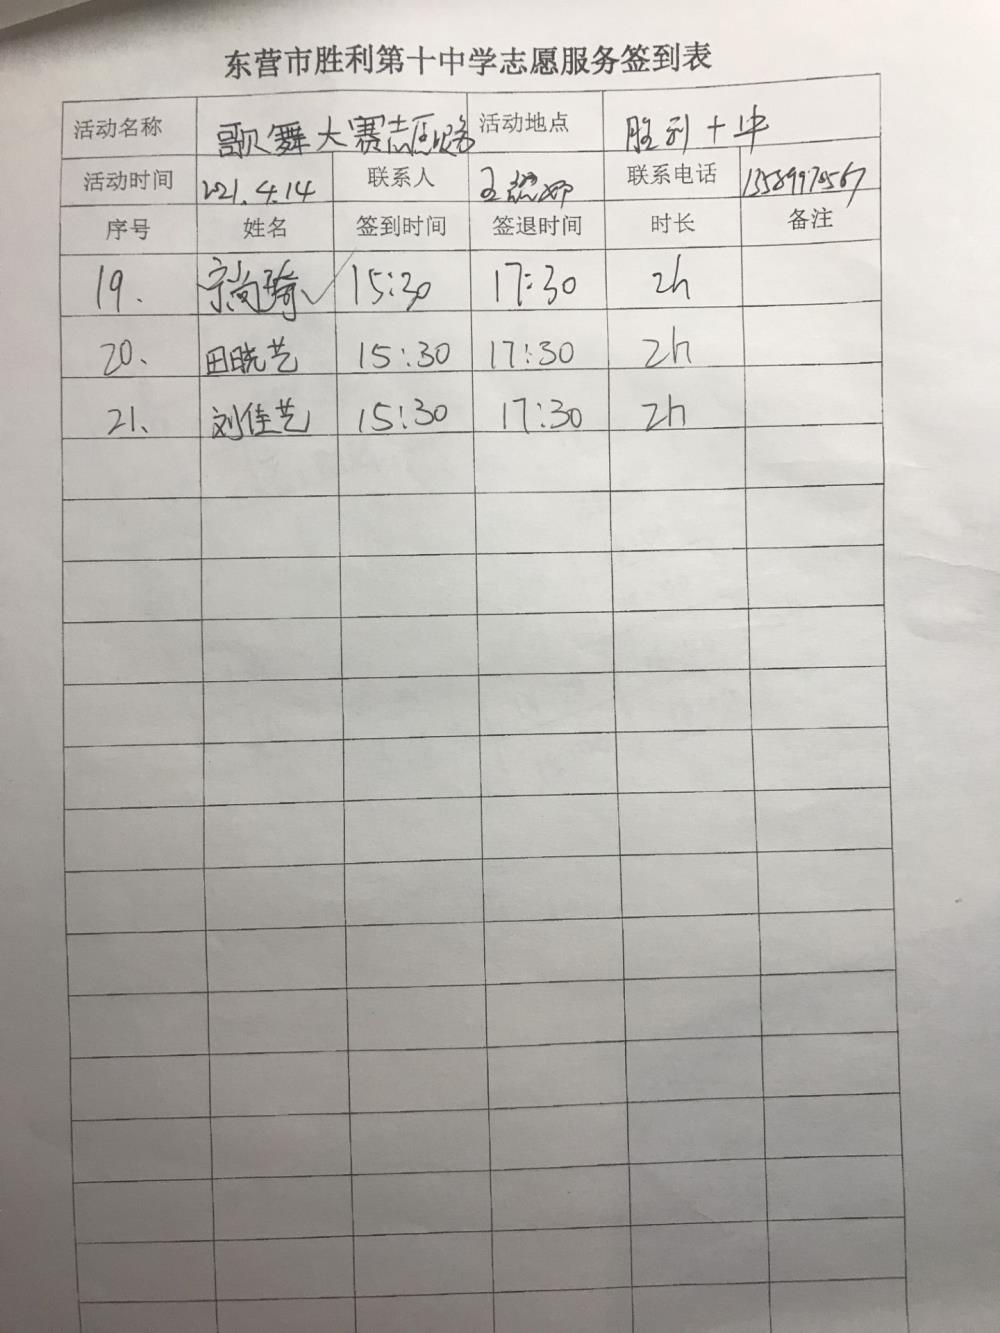 东营市胜利第十中学志愿服务签到表
活动名称 歌舞大赛志愿服务 活动地点 胜利十中
活动时间 2021.4.14 联系人 王 娜 联系电话 13589970567
序号 姓名 签到时间 签退时间 时长 备注
19. 宗尚琦 15:30 17:30 2h
20、 田晓艺 15:30 17:30 2h
21、 刘佳艺 15:30 17:30 2h